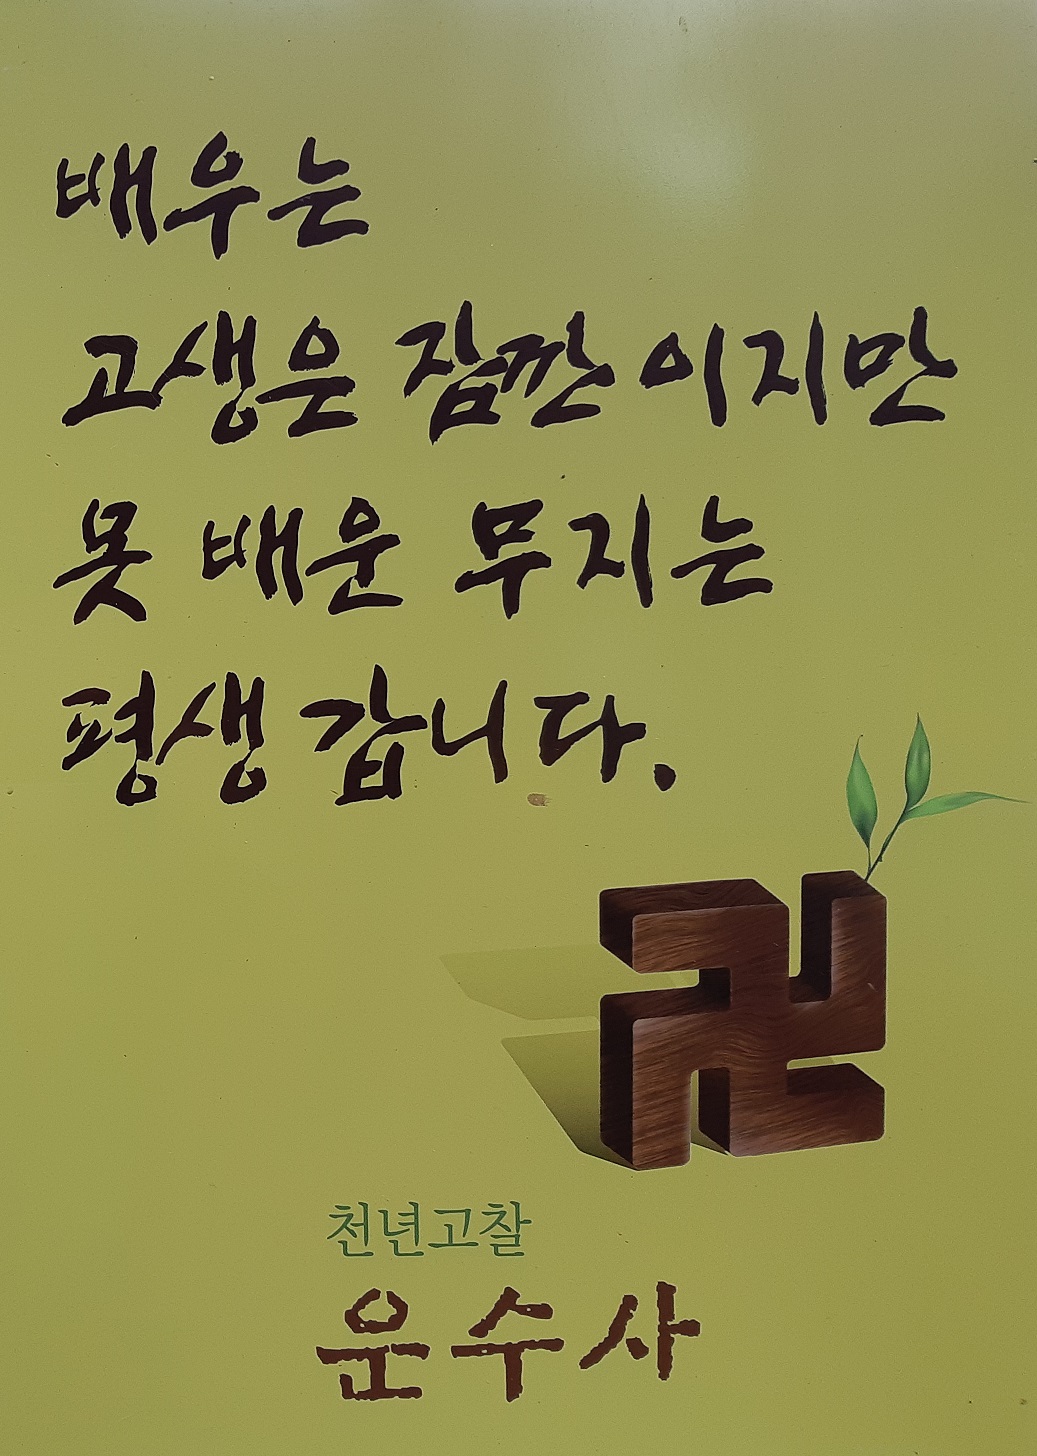 배우는
고생은 잠깐이지만
못 배운 무지는
평생 갑니다.
천년고찰
운수사